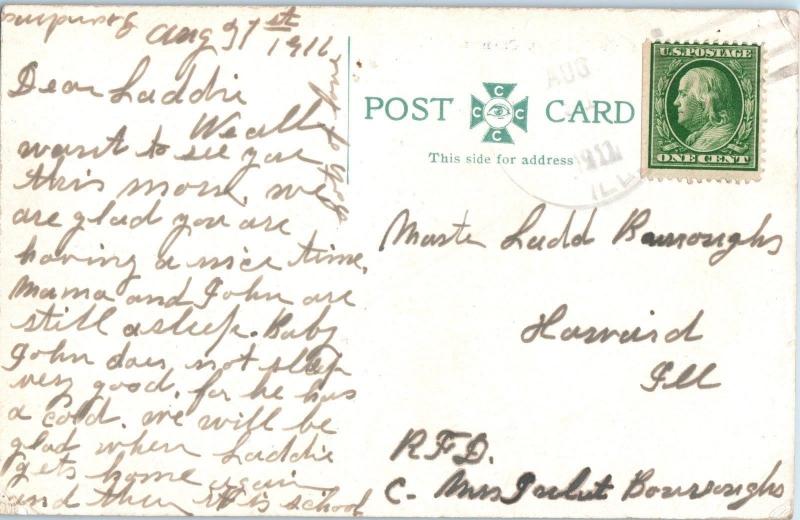 Aug 31st
1911
Dear Laddie
We all
want to see you
this morn. we
are glad you are
having a nice time.
Mama and John are
still asleep. Baby
John does not sleep
very good, for he has
a cold. we will be
glad when Laddie
gets home again
and then it is school
lots of love
POST CARD
C C C C
This side for address
AUG
1911
ILL
U.S.POSTAGE
ONE CENT
Master Ladd Burroughs
Harvard
Ill
R.F.D.
C- Mrs Burroughs